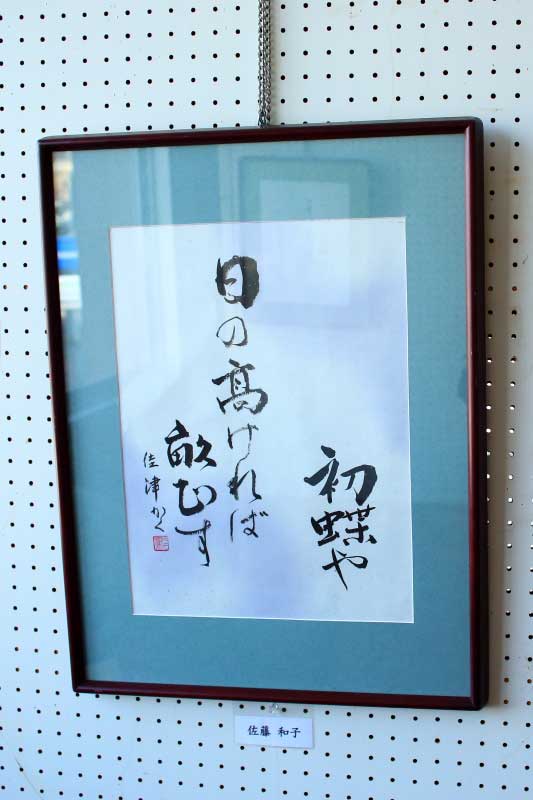 初蝶や
日の高ければ
畝むす
佳津かく
佐藤 和子